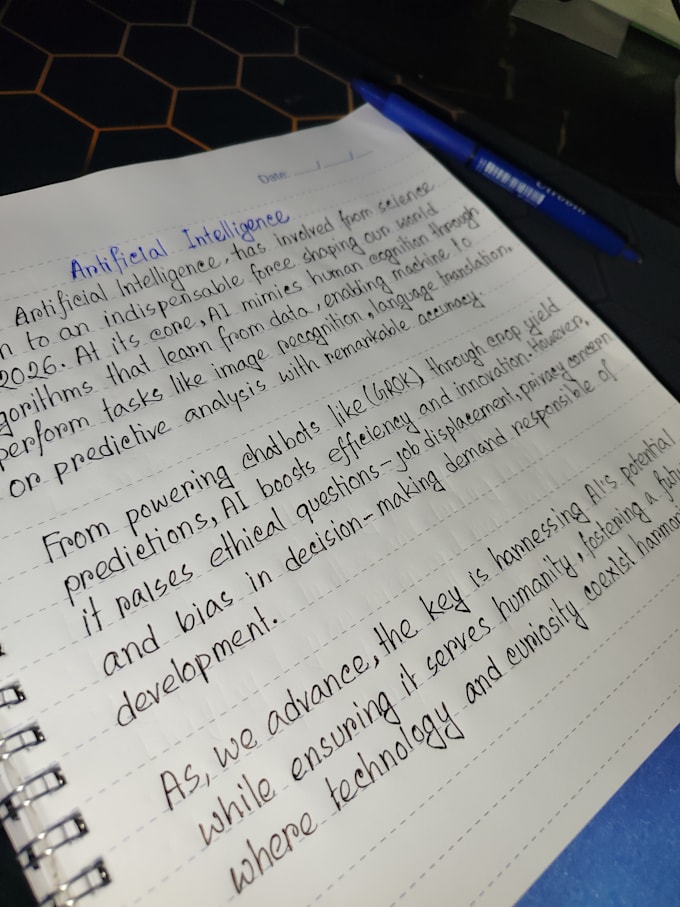 Date: __/__/__
Artificial Intelligence
Artificial Intelligence, has involved from science
n to an indispensable force shaping our world
2026. At its core, AI mimics human cognition through
gorithms that learn from data, enabling machine to
perform tasks like image recognition, language translation,
or predictive analysis with remarkable accuracy.
From powering chatbots like (GROK) through crop yield
predictions, AI boosts efficiency and innovation. However,
it raises ethical questions-job displacement, privacy concern
and bias in decision-making demand responsible of
development.
As, we advance, the key is harnessing AI's potential
while ensuring it serves humanity, fostering a futu
where technology and curiosity coexist harmoni